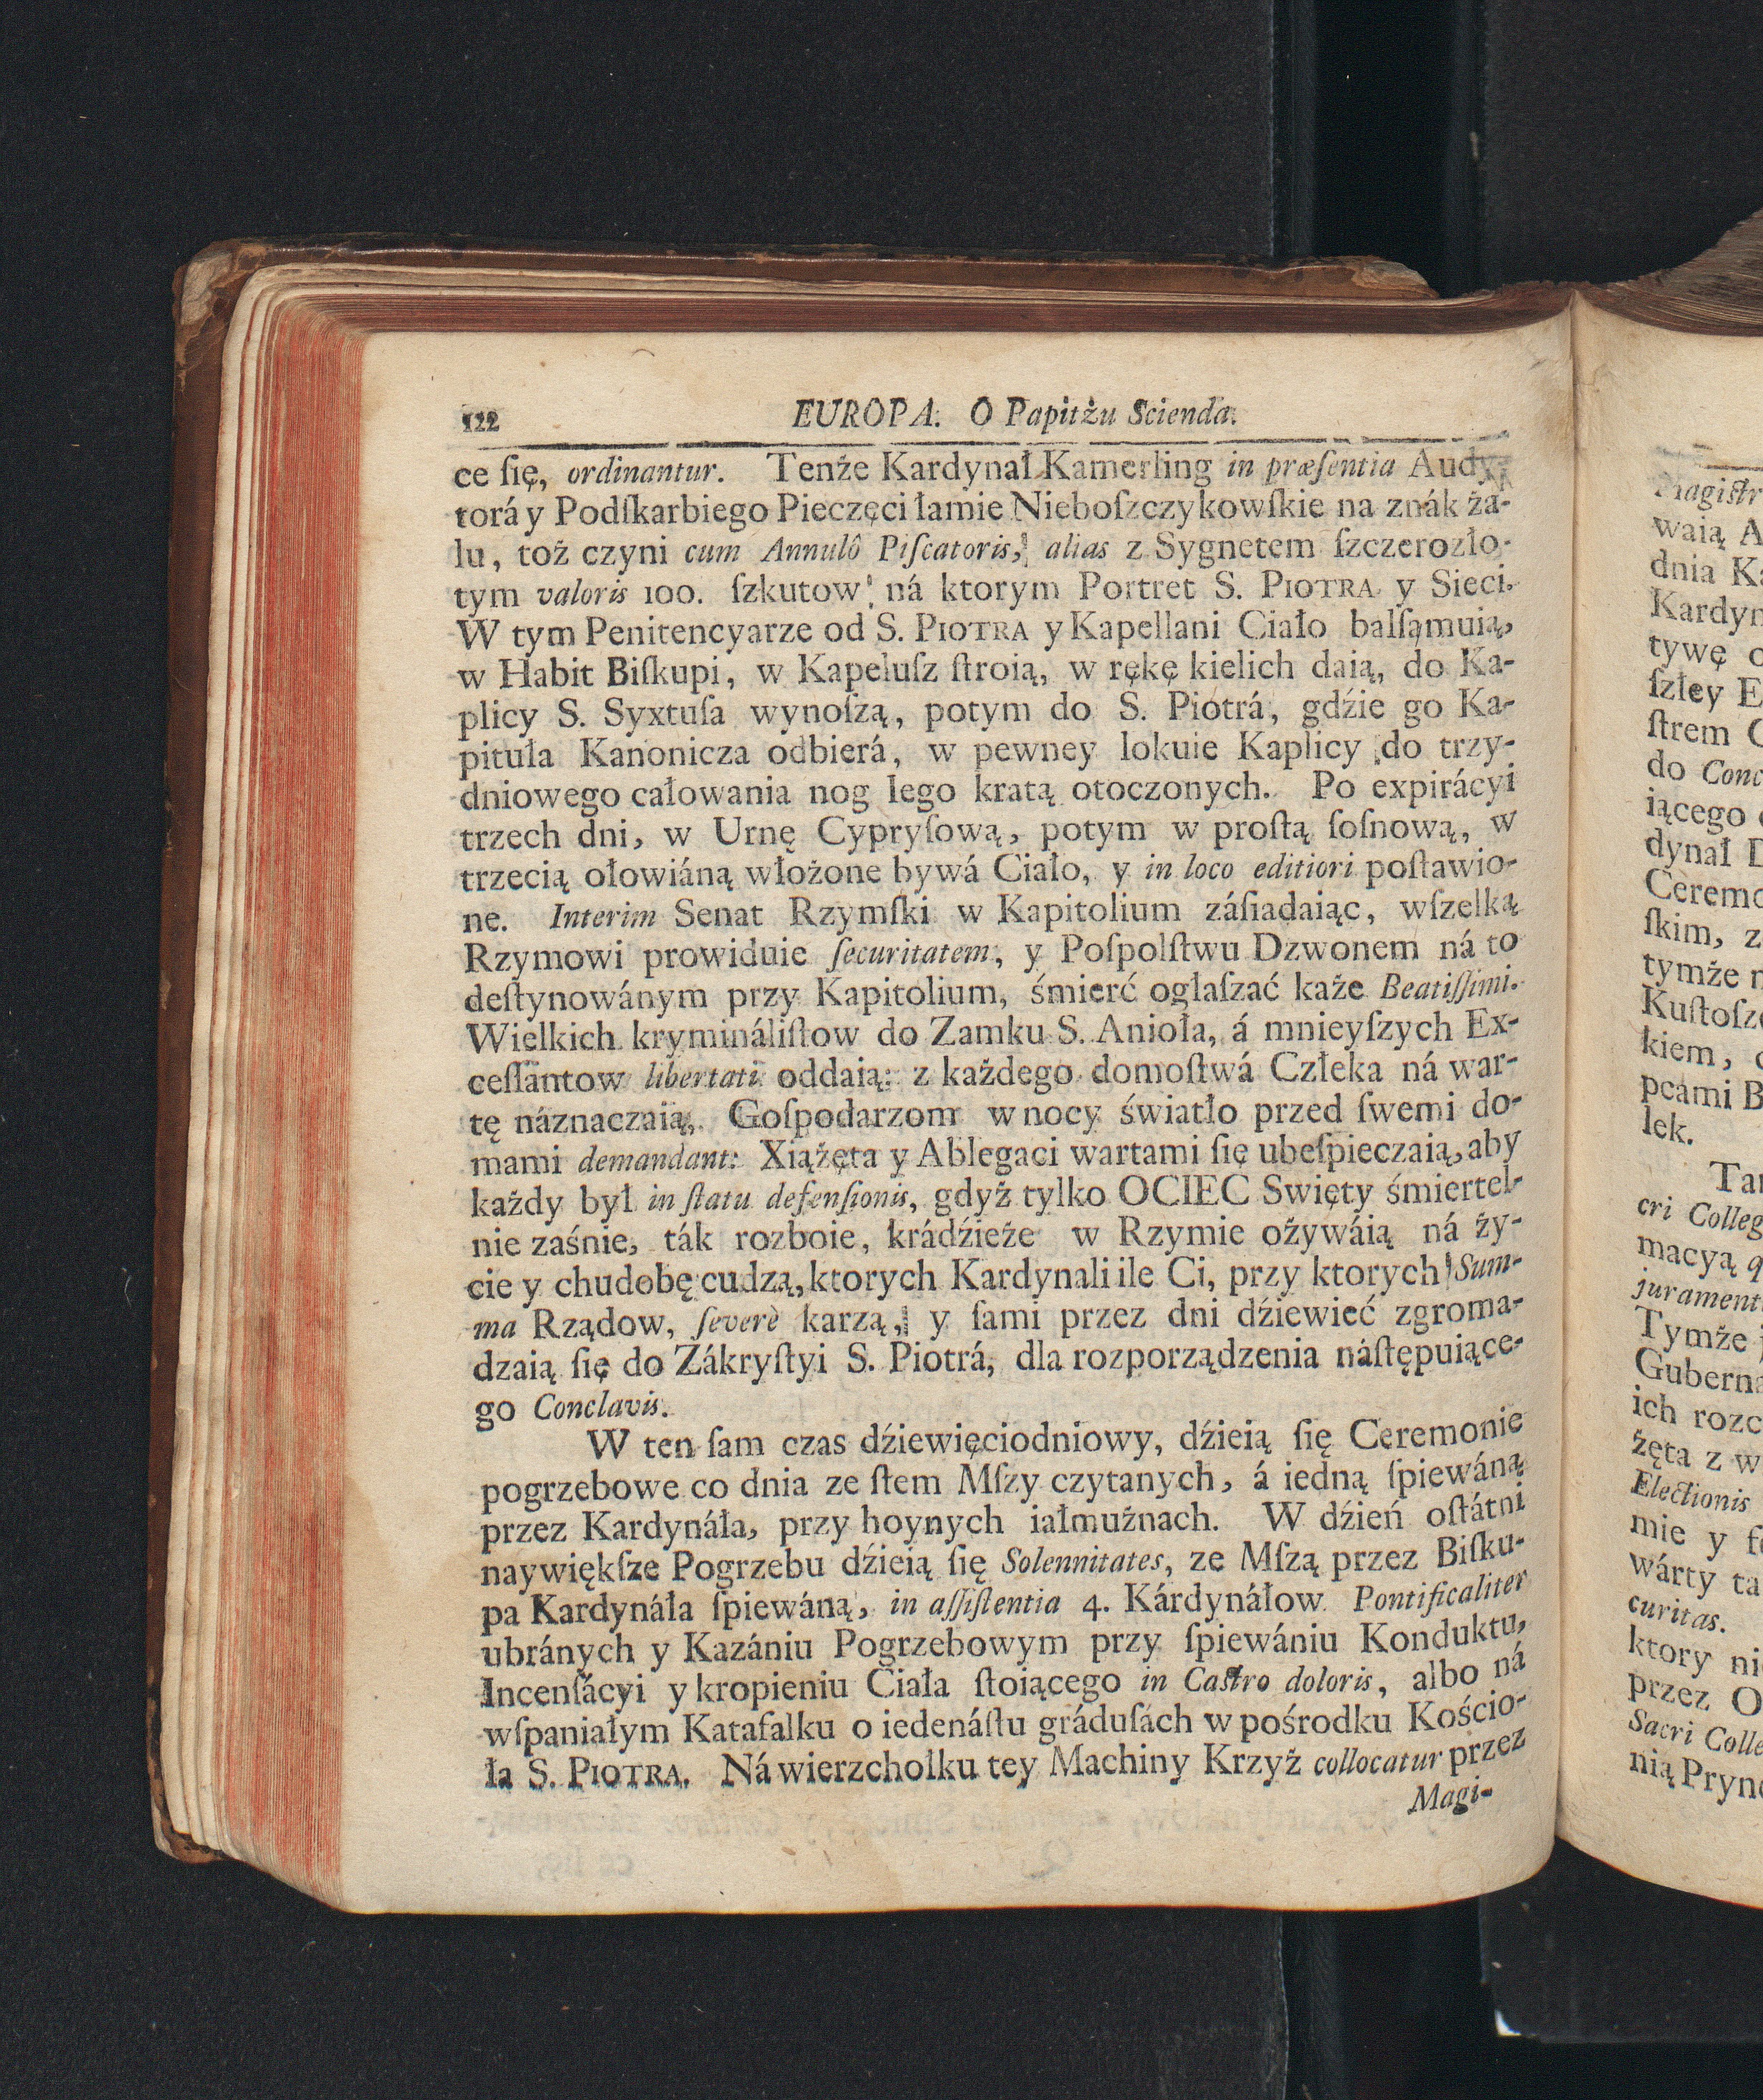 122 EUROPA. O Papitżu Scienda.
ce ſię, ordinantur. Tenże Kardynał Kamerling in præſentia Audy-
torá y Podſkarbiego Pieczęci łamie Nieboſzczykowſkie na znák ża-
lu, toż czyni cum Annulô Piſcatoris, alias z Sygnetem ſzczerozło-
tym valoris 100. ſzkutow, ná ktorym Portret S. PIOTRA y Sieci.
W tym Penitencyarze od S. PIOTRA y Kapellani Ciało balſamuią,
w Habit Biſkupi, w Kapeluſz ſtroią, w rękę kielich daią, do Ka-
plicy S. Syxtuſa wynoſzą, potym do S. Piotrá, gdźie go Ka-
pituła Kanonicza odbierá, w pewney lokuie Kaplicy do trzy-
dniowego całowania nog Iego kratą otoczonych. Po expirácyi
trzech dni, w Urnę Cypryſową, potym w proſtą ſoſnową, w
trzecią ołowiáną włożone bywá Ciało, y in loco editiori poſtawio-
ne. Interim Senat Rzymſki w Kapitolium záſiadaiąc, wſzelką
Rzymowi prowiduie ſecuritatem, y Poſpolſtwu Dzwonem ná to
deſtynowánym przy Kapitolium, śmierć ogłaſzać każe Beatiſſimi.
Wielkich kryminaliſtow do Zamku S. Anioła, á mnieyſzych Ex-
ceſſantow libertati oddaią: z każdego domoſtwá Człeka ná war-
tę náznaczaią, Goſpodarzom w nocy światło przed ſwemi do-
mami demandant: Xiążęta y Ablegaci wartami ſię ubeſpieczaią, aby
każdy był in ſtatu defenſionis, gdyż tylko OCIEC Swięty śmiertel-
nie zaśnie, ták rozboie, krádźieże w Rzymie ożywáią ná ży-
cie y chudobę cudzą, ktorych Kardynali ile Ci, przy ktorych Sum-
ma Rządow, ſeverè karzą, y ſami przez dni dźiewieć zgroma-
dzaią ſię do Zákryſtyi S. Piotrá, dla rozporządzenia náſtępuiące-
go Conclavis.
W ten ſam czas dźiewięciodniowy, dźieią ſię Ceremonie
pogrzebowe co dnia ze ſtem Mſzy czytanych, á iedną ſpiewáną
przez Kardynáła, przy hoynych iałmużnach. W dźień oſtátni
naywiękſze Pogrzebu dźieią ſię Solennitates, ze Mſzą przez Biſku-
pa Kardynáła ſpiewáną, in aſſiſtentia 4. Kárdynáłow Pontificaliter
ubránych y Kazániu Pogrzebowym przy ſpiewániu Konduktu,
Incenſácyi y kropieniu Ciała ſtoiącego in Caſtro doloris, albo ná
wſpaniałym Katafalku o iedenáſtu gráduſách w pośrodku Kościo-
ła S. PIOTRA. Ná wierzchołku tey Machiny Krzyż collocatur przez
Magi-
waią A
dnia K
Kardyn
tywę
ſzłey E
ſtrem C
do Conc
iącego
dynał D
Ceremo
ſkim, z
tymże
Kuſtoſz
kiem,
pcámi B
lek.
Ta
cri Colleg
macyą q
jurament
Tymże
Guberna
ich rozc
żęta z w
Electionis
mie y ſ
wárty ta
curitas.
ktory ni
przez O
Sacri Colle
nią Prync